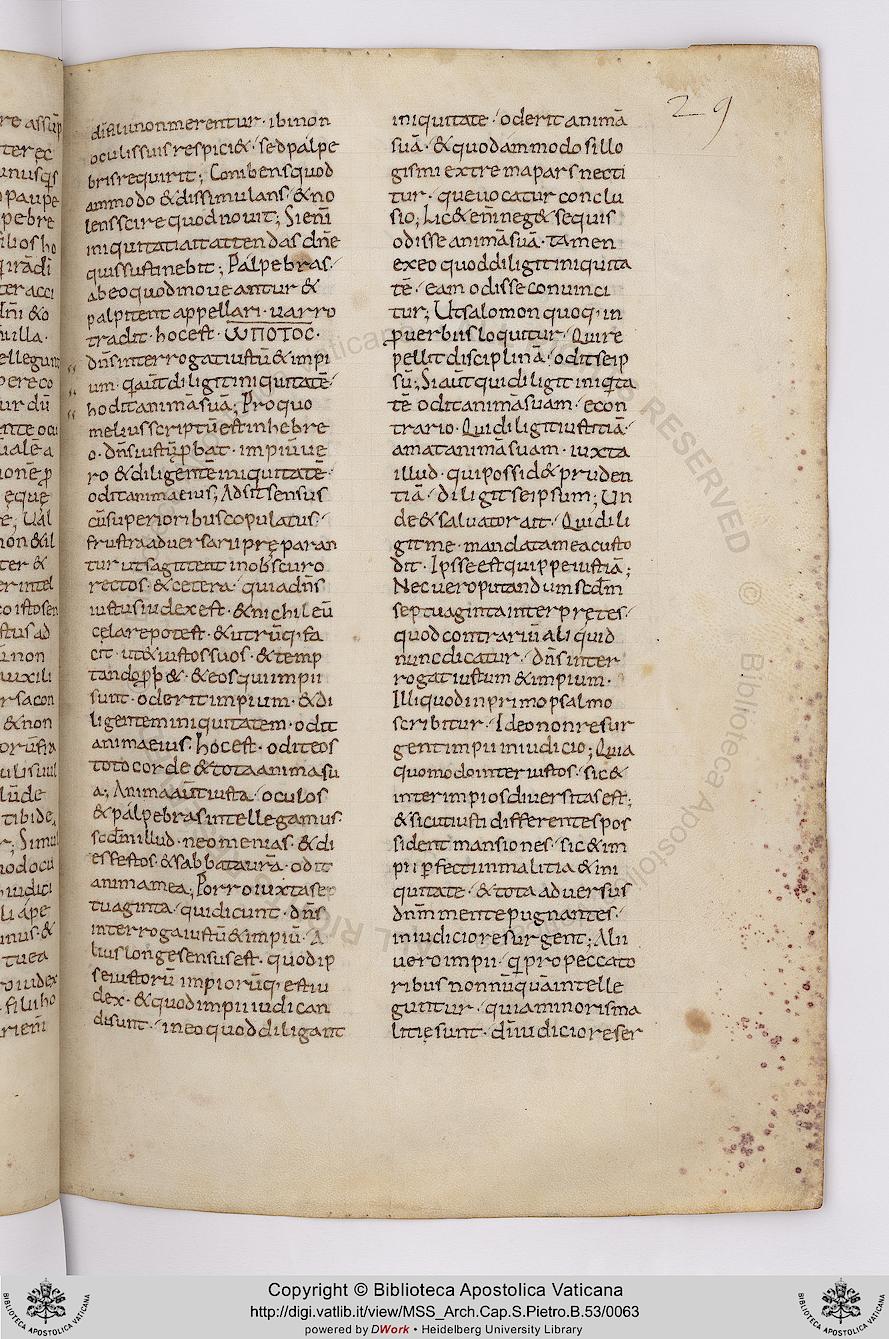 29
dīfilii non merentur · ibi non
oculis suis respici& · sed palpe
bris requirit ; Conibens quod
ammodo & dissimulans · & no
lens scire quod nouit ; Si enī
iniquitati aitattendas dn̄e
quis sustinebit ; Palpebras ·
ab eo quod moueantur &
palpitent appellari · uarro
tradit · hoc est · ѠΠΟΤΟC ·
dn̄s interrogat iustū & impi
um · q aūt diligit iniquitatē ·
hodit animā suā ; Pro quo
melius scriptū est in hebre
o · dn̄s iustū ꝓbat · impiū ue
ro & diligentē iniquitatē ·
odit anima eius ; Adsit sensus
cū superioribus copulatus ·
frustra aduersarii pręparan
tur ut sagittent in obscuro
rectos · & cetera · quia dn̄s
iustus iudex est · & nichil eū
celare potest · & utrūq; fa
cit · ut & iustos suos · & temp
tando ꝓb& · & eos qui impii
sunt · oderit impium · & di
ligentem iniquitatem · odit
anima eius · hoc est · odit eos
toto corde & tota anima su
a ; Anima aūt iusta · oculos
& palpebras intellegamus
scdm̄ illud · neomenias · & di
es festos · & sabbata urā · odit
anima mea ; Porro iuxta sep
tuaginta · qui dicunt · dn̄s
interrogat iustū & impiū · A
lius longe sensus est · quod ip
se iustorū impiorūq; est iu
dex · & quod impii iudican
di sunt · in eo quod diligant
iniquitate · oderit animā
suā · & quodammodo sillo
gismi extrema pars necti
tur · que uocatur conclu
sio ; Lic& enī neg& se quis
odisse animā suā · tamen
ex eo quod diligit iniquita
tē · eam odisse conuinci
tur ; Ut salomon quoq; in
ꝓuerbiis loquitur · Qui re
pellit disciplinā · odit seip
sū ; Si aūt qui diligit iniqita
tē odit animā suam · econ
trario · Qui diligit iustitiā ·
amat animā suam · iuxta
illud · qui possid& pruden
tiā · diligit se ipsum ; Un
de & saluator ait · Qui dili
git me · mandata mea custo
dit · Ipsse est quippe iustiā ;
Nec uero putandum scdm̄
septuaginta interpretes ·
quod contrariū aliquid
nunc dicatur · dn̄s inter
rogat iustum & impium ·
Illi quod in primo psalmo
scribitur · Ideo non resur
gent impii in iudicio ; Quia
quomodo inter iustos · sic &
inter impios diuersitas est ;
& sicut iusti differentes pos
sident mansiones · sic & im
pii ꝑfecti in malitia & ini
quitate · & tota aduersus
dnm̄ mente pugnantes ·
in iudicio resurgent ; Alii
uero impii · q pro peccato
ribus non nūquā intelle
guntur · quia minoris ma
litię sunt · dn̄i iudicio reser
Copyright © Biblioteca Apostolica Vaticana
http://digi.vatlib.it/view/MSS_Arch.Cap.S.Pietro.B.53/0063
powered by DWork • Heidelberg University Library